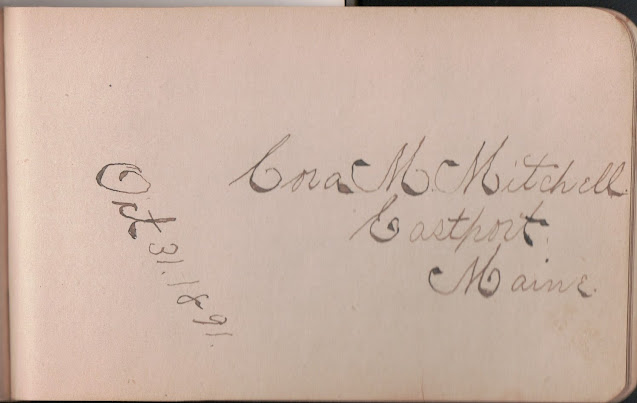 Cora M. Mitchell
Eastport,
Maine.
Oct 31. 1891.